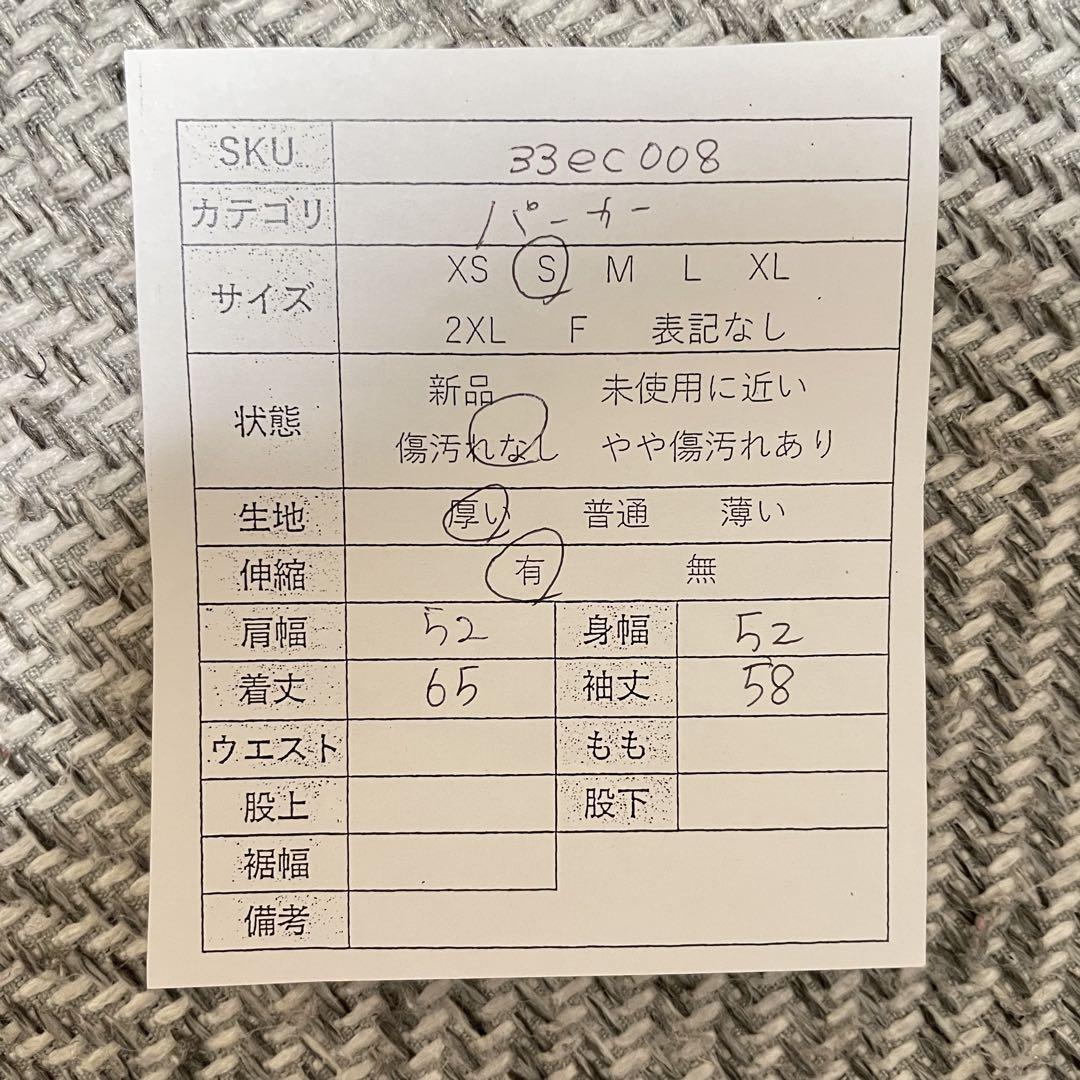 SKU 33ec008
カテゴリ パーカー
サイズ XS S M L XL
2XL F 表記なし
状態 新品 未使用に近い
傷汚れなし やや傷汚れあり
生地 厚い 普通 薄い
伸縮 有 無
肩幅 52 身幅 52
着丈 65 袖丈 58
ウエスト もも
股上 股下
裾幅
備考